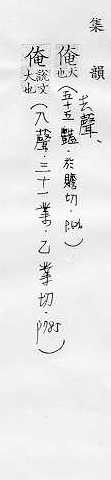 集韻
去聲、
俺 大也(五十五豔·於贍切·p.626)
俺 說文大也(入聲·三十一業·乙業切·p785)